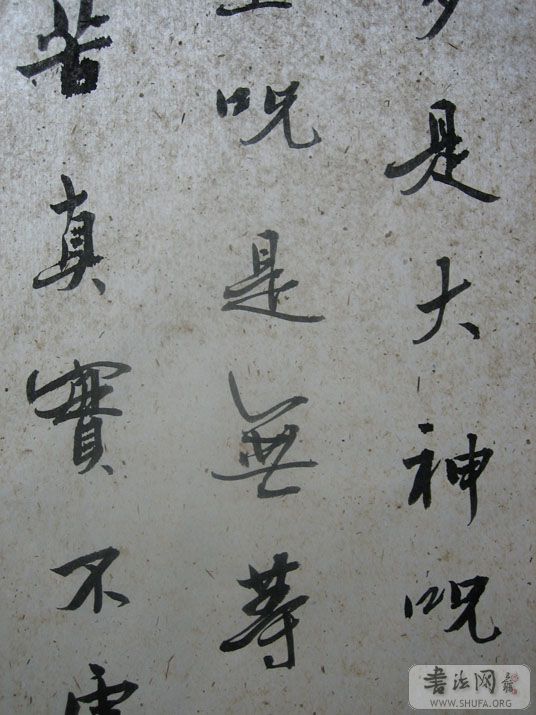 是大神呪
呪是無等
苦真實不虛
书法网
WWW.SHUFA.ORG